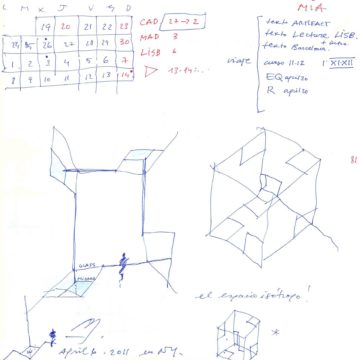 L M X J V S D
19 20 21 22 23
24 25 26 27 28 29 30
1 2 3 4 5 6 7
8 9 10 11 12 13 14
CAD 27→2
MAD 3
LISB 6
13-14...
MIA
texto ARTEFACT
texto Lecture LISB.
texto Barcelona
viaje
curso 11-12 1 XI-XII
EQ apulso
R apulso
GLASS
MIRROR
el espacio isótropo!
April 6-2011 en NY.